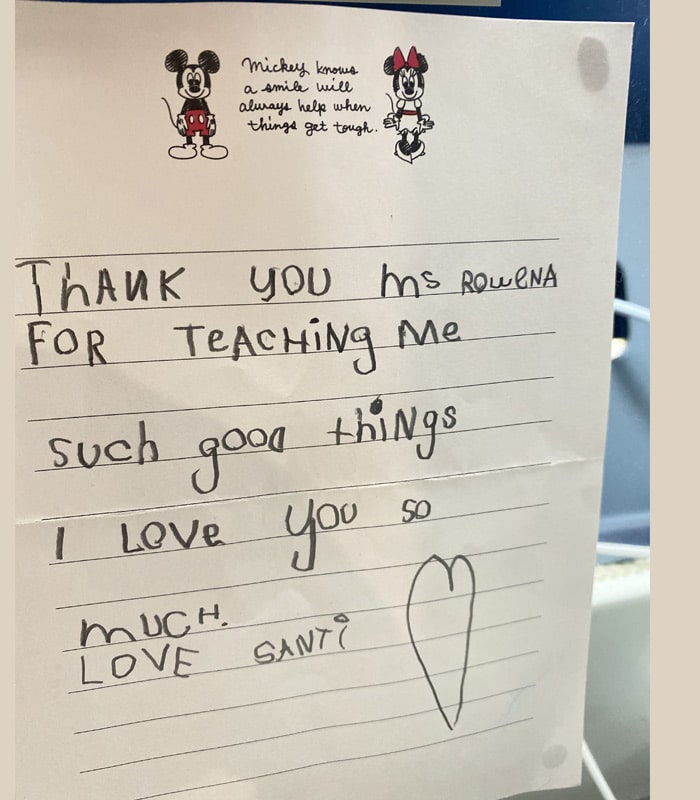 Mickey knows
a smile will
always help when
things get tough.
ThANK YOU Ms ROWeNA
FOR TeACHiNg Me
such good thiNgs
I LOVe you so
MUCH.
LOVE SANTi